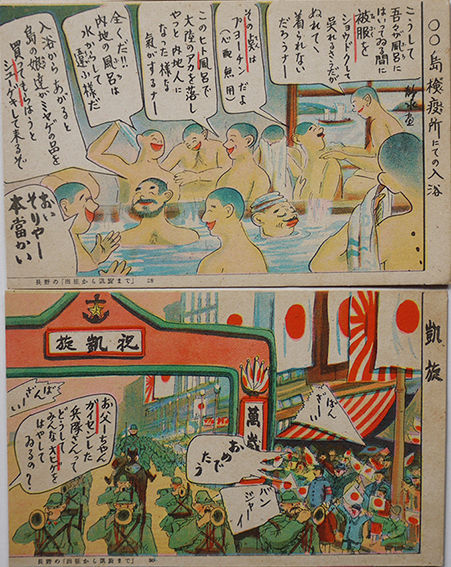 〇〇島檢疫所にての入浴
こうして
吾々が風呂に
はいってゐる間に
被服を
ショウドクして
呉れるさうだが
ぬれて
着られない
だらうナー
プヨーチンだよ
(心配無用)
このヒト風呂で
大陸のアカを落し
やっと内地人に
なった様な
氣がするナー
全くだ!!
内地の風呂は
水からして
違ふ様だ
入浴からあがると
島の娘達がミヤゲの品を
買ってもらはうと
シューゲキして来るぞ
おい
そりやー
本當かい
長野の『出征から凱旋まで』 28
凱旋
祝凱旋
萬歳
ばんざーい
ばんざーい
おめでたう
バンジャーイ
お父ーちゃん
ガイセンした
兵隊さんって
どうして
みんなオヒゲを
はやして
ゐるの?
長野の『出征から凱旋まで』 30